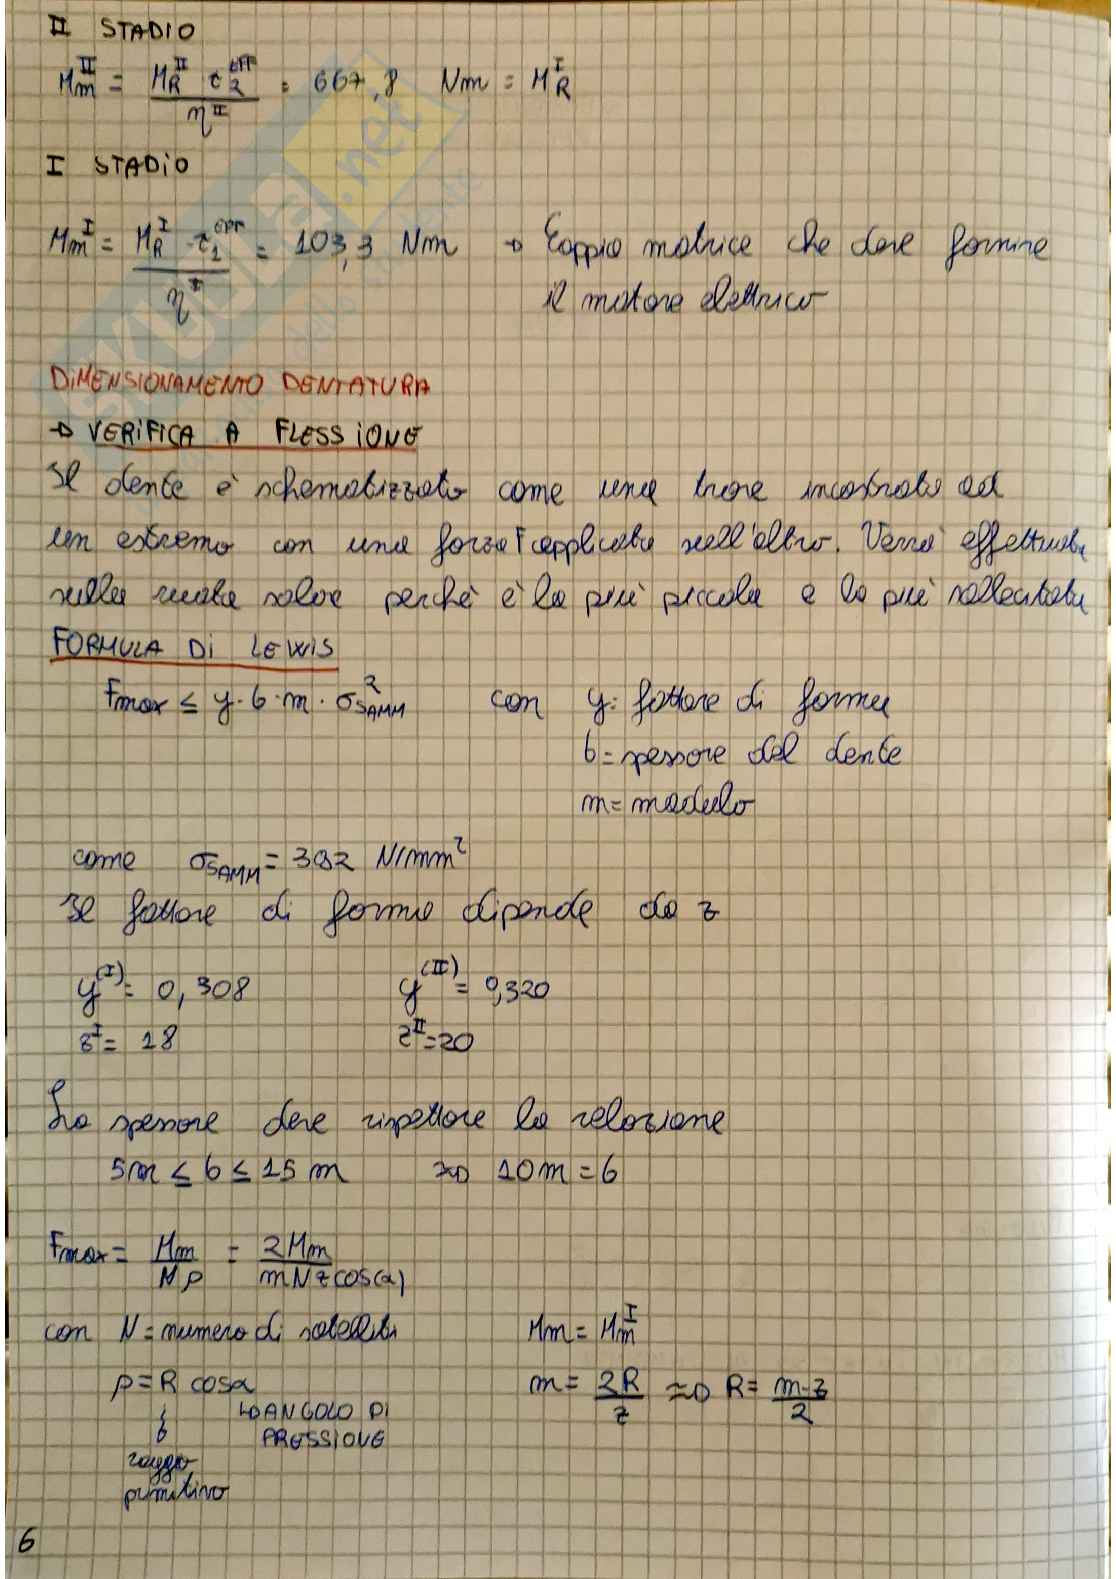 II STADIO
Mm^II = MR^II τ2^eff / η^II = 667,8 Nm = MR^I
I STADIO
Mm^I = MR^I · τ1^eff / η^I = 103,3 Nm → Coppia motrice che deve fornire
il motore elettrico
DIMENSIONAMENTO DENTATURA
→ VERIFICA A FLESSIONE
Il dente è schematizzato come una trave incastrata ad
un estremo con una forza F applicata sull'altro. Verrà effettuata
sulla ruota solare perché è la più piccola e la più sollecitata
FORMULA DI LEWIS
Fmax ≤ y · b · m · σSAMM^2 con y: fattore di forma
b = spessore del dente
m = modulo
come σSAMM = 392 N/mm²
Il fattore di forma dipende da z
y^(I) = 0,308 y^(II) = 0,320
z^I = 18 z^II = 20
Lo spessore deve rispettare la relazione
5m ≤ b ≤ 15m => 10m = b
Fmax = Mm / Nρ = 2Mm / mNzcos(α)
con N = numero di satelliti Mm = Mm^I
ρ = R cosα m = 2R / z => R = m·z / 2
↳ ANGOLO DI
PRESSIONE
raggio
primitivo
6